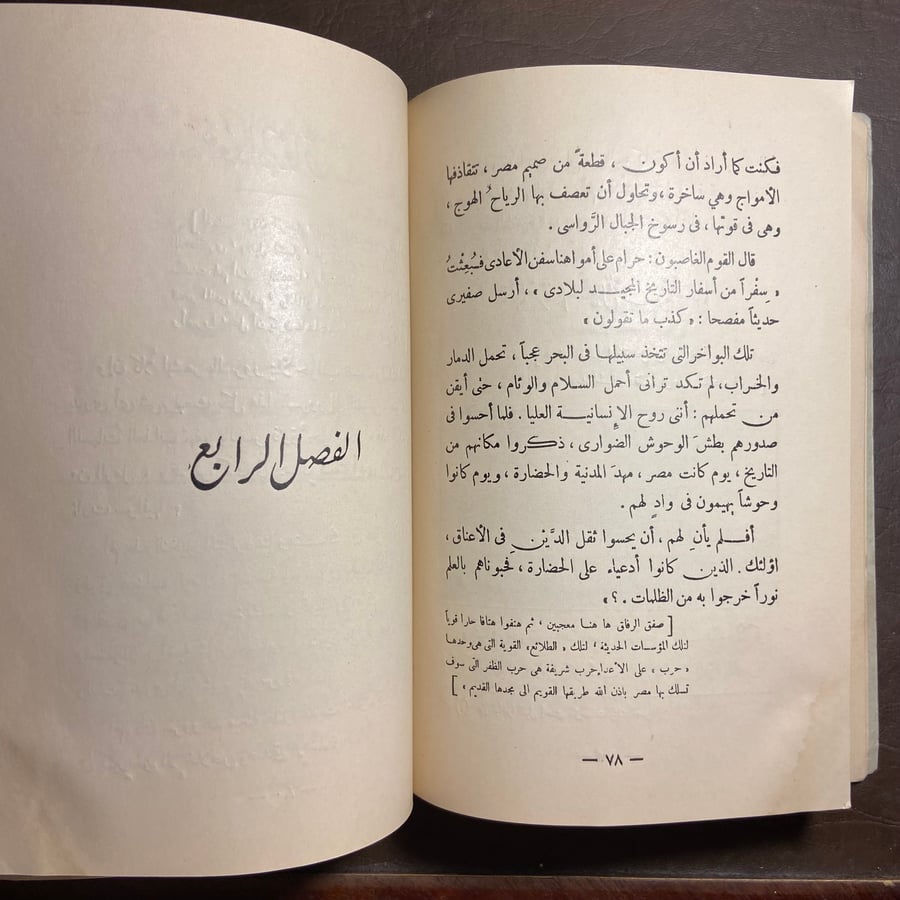 فكنت كما أراد أن أكون ، قطعةً من صميم مصر ، تتقاذفها
الأمواج وهي ساخرة ، وتحاول أن تعصف بها الرياحُ الهوج ،
وهى فى قوتها ، فى رسوخ الجبال الرَّواسى .
قال القوم الغاصبون : حرام على أمواهنا سفن الأعادى فبُعِثْتُ
« سِفْراً من أسفار التاريخ المجيد لبلادى » ، أرسل صفيرى
حديثاً مفصحا : « كذب ما تقولون »
تلك البواخر التى تتخذ سبيلها فى البحر عجباً ، تحمل الدمار
والخراب ، لم تكد ترانى أحمل السلام والوئام ، حتى أيقن
من تحملهم : أننى روح الإنسانية العليا . فلما أحسوا فى
صدورهم بطشَ الوحوش الضوارى ، ذكروا مكانهم من
التاريخ ، يوم كانت مصر ، مهدَ المدنية والحضارة ، ويوم كانوا
وحوشاً يهيمون فى وادٍ لهم .
أفلم يأنِ لهم ، أن يحسوا ثقل الدَّيْنِ فى الأعناق ،
اؤلئك . الذين كانوا أدعياء على الحضارة ، فحبوناهم بالعلم
نوراً خرجوا به من الظلمات . ؟ »
[ صفق الرفاق ها هنا معجبين ، ثم هتفوا هتافا حارا قوياً
لتلك المؤسسات الحديثة ، لتلك « الطلائع » القوية التى هى وحدها
« حرب » على الأعداء حرب شريفة هى حرب الظفر التى سوف
تسلك بها مصر باذن الله طريقها القويم الى مجدها القديم » ]
— ٧٨ —
الفصل الرابع